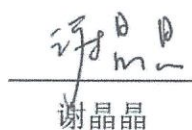 谢晶晶
谢晶晶